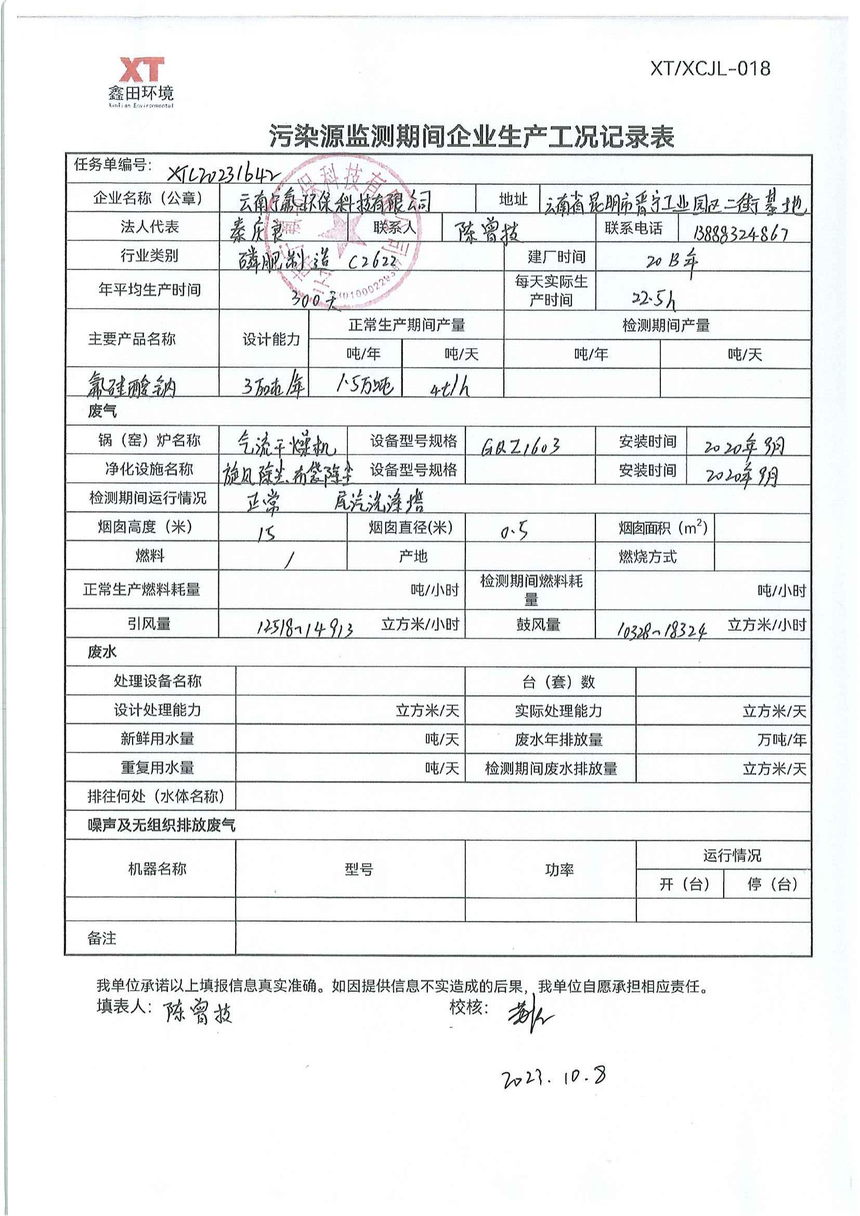 XT
鑫田环境
XinTian Environmental
XT/XCJL-018
污染源监测期间企业生产工况记录表
任务单编号: XTC20231642
企业名称（公章） 云南 环保科技有限公司 地址 云南省昆明市晋宁工业园区二街基地
法人代表 秦庆良 联系人 陈曾技 联系电话 13888324867
行业类别 磷肥制造 C2622 建厂时间 2013年
年平均生产时间 300天 每天实际生产时间 22.5h
主要产品名称 设计能力 正常生产期间产量 检测期间产量
吨/年 吨/天 吨/年 吨/天
氟硅酸钠 3万吨/年 1.5万吨 4t/h
废气
锅（窑）炉名称 气流干燥机 设备型号规格 GQZ1603 安装时间 2020年9月
净化设施名称 旋风除尘、布袋除尘 设备型号规格 安装时间 2020年9月
检测期间运行情况 正常 尾汽洗涤塔
烟囱高度（米） 15 烟囱直径(米) 0.5 烟囱面积（m²）
燃料 / 产地 燃烧方式
正常生产燃料耗量 吨/小时 检测期间燃料耗量 吨/小时
引风量 12518~14913 立方米/小时 鼓风量 10328~18324 立方米/小时
废水
处理设备名称 台（套）数
设计处理能力 立方米/天 实际处理能力 立方米/天
新鲜用水量 吨/天 废水年排放量 万吨/年
重复用水量 吨/天 检测期间废水排放量 立方米/天
排往何处（水体名称）
噪声及无组织排放废气
机器名称 型号 功率 运行情况
开（台） 停（台）
备注
我单位承诺以上填报信息真实准确。如因提供信息不实造成的后果，我单位自愿承担相应责任。
填表人: 陈曾技 校核:
2023.10.8